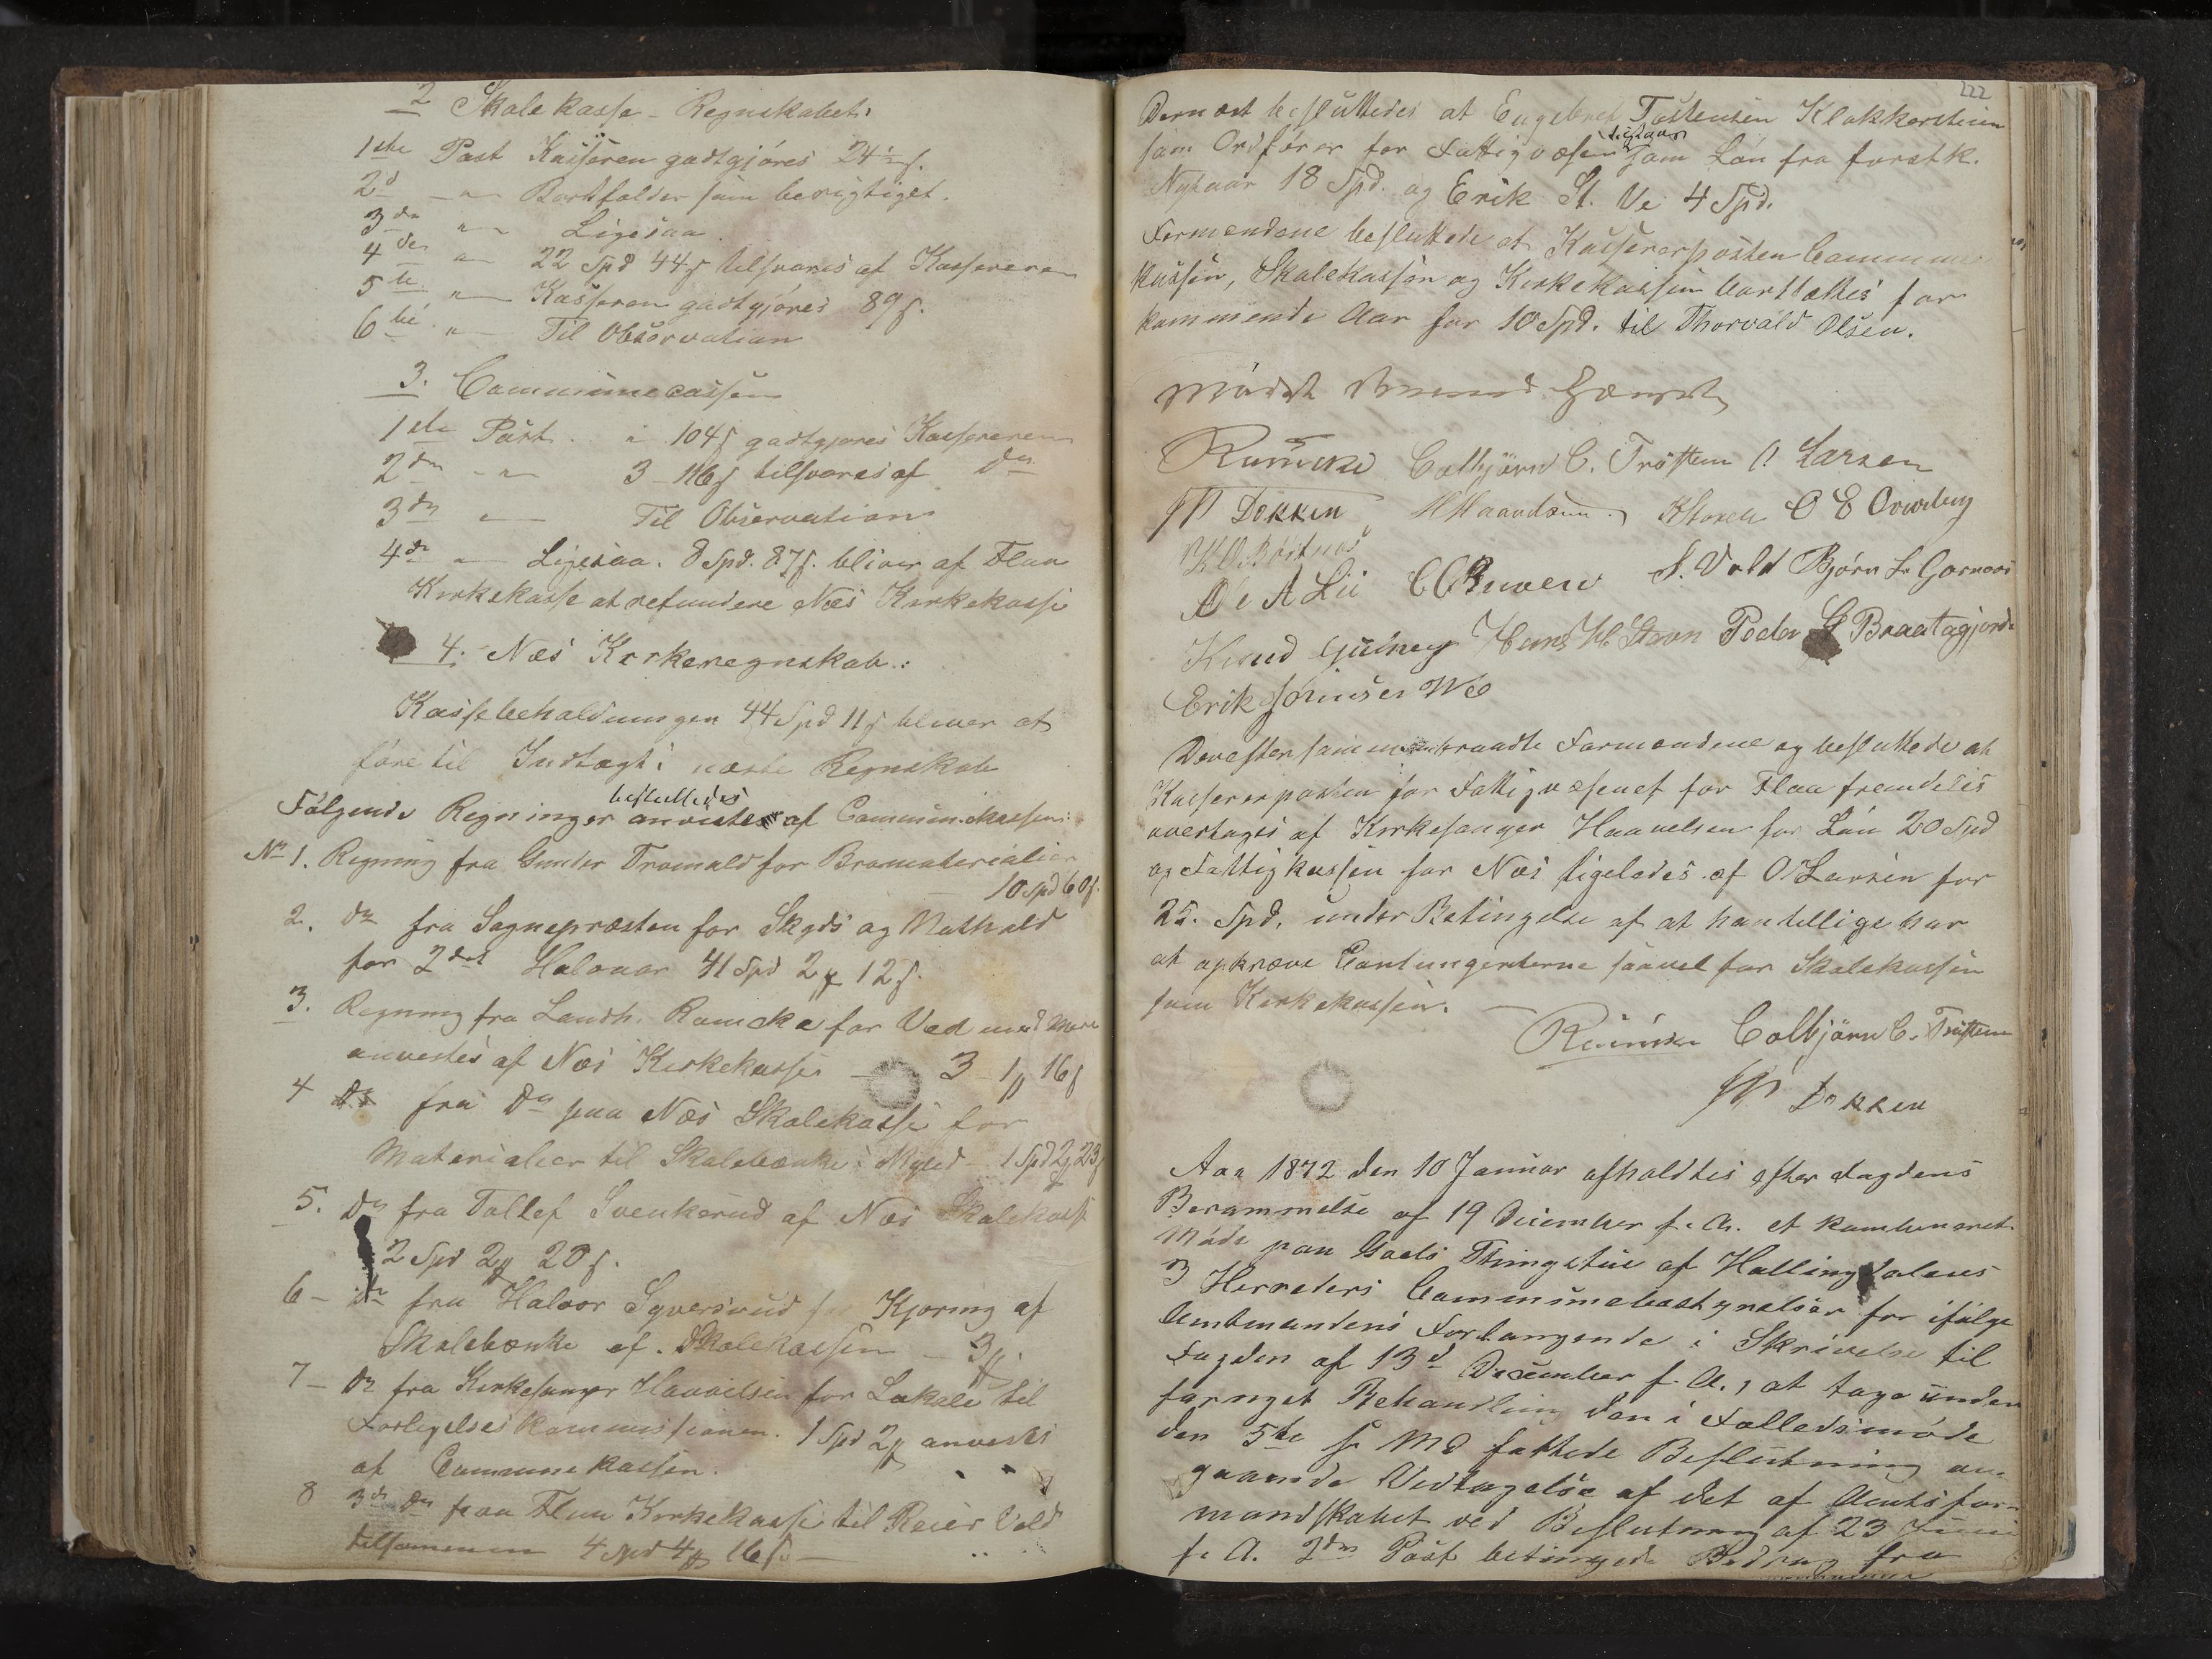 2 Skolekasse-Regnskabet:
1ste Post Kasseren godtgjöres 24½ s.
2d — " — Bortfalder som berigtiget.
3die " — Ligesaa
4de " — 22 Spd 44 s tilsvares af Kassereren
5te " — Kasseren godtgjöres 89 s.
6te " — Til Observation
3. Communecassen
1ste Post . . i 104 s godtgjøres Kassereren
2den - " - 3 - 116 s tilsvares af Do
3die " — Til Observation
4de " — Ligesaa. 8 Spd. 87 s. bliver af Flaa
Kirkekasse at refundere Næs Kirkekasse
4. Næs Kirkeregnskab.:
Kassebeholdningen 44 Spd 11 s bliver at
före til Indtægt i næste Regnskab
besluttedes
Fölgende Regninger anvistes af Communekassen:
No 1. Regning fra Gunder Tromald for Bromaterialier
10 Spd 60 s.
2. Do fra Sognepræsten for Skyds og Nathold
for 2det Halvaar 41 Spd 2 # 12 s.
3. Regning fra Landh. Ramcke for Ved med mere
anvistes af Næs Kirkekasse — 3 - 1 # 16 s
4 Do fra Do paa Næs Skolekasse for
Materialier til Skolebænke i - 1 Spd 2 # 23 s
5. Do fra Tollef Svenkerud af Næs Skolekasse
2 Spd 2 # 20 s.
6 — Do fra Halvor Syversrud for Kjøring af
Skolebænke af Skolekassen — 3 #.
7 — Do fra Kirkesanger Haavelsen for Lokale til
Forligelseskommissionen. 1 Spd 2 # anvistes
af Communekassen.
8 3de Do paa Flaa Kirkekasse til Reier Vold
tilsammen 4 Spd 4 # 16 s —
222
Dernæst besluttedes at Engebret Tostensen Klokkersteien
tilstaaes
som Ordförer for Fattigvæsen som Lön fra førstk.
Nytaar 18 Spd. og Erik St. Ve 4 Spd.
Formændene besluttede at Kassererposten Commune
kassen, Skolekassen og Kirkekassen bortsættes for
kommende Aar for 10 Spd. til Thorvald Olsen.
Mödet hævet
Ramcke Colbjörn C. Tröstem O Larsen
P Dokken H Haandsen. O E Overberg
K O Börtnæs
O A Lii S. Vold Bjørn L. Gornæs
Knud Gulsney Hans H Stavn Peder G Braatagjorde
Erik Joensen We
Derefter sammentraadte Formændene og besluttede at
Kassererposten for Fattigvæsenet for Flaa fremdeles
overtages af Kirkesanger Haavelsen for Lön 20 Spd
og Fattigkassen for Næs ligeledes af O Larsen for
25. Spd. under Betingelse af at han tillige har
at opkræve Contingenterne saavel for Skolekassen
som Kirkekassen. —
Ramcke Colbjörn C. Tröstem
P Dokken
Aar 1872 den 10 Januar afholdtes efter Fogdens
Berammelse af 19 December f. A. et kombineret
Möde paa Gaels Thingstue af Hallingdalens
3 Herreders Communebestyrelser for ifölge
Amtmandens Forlangende i Skrivelse til
Fogden af 13d December f. A., at tage under
fornyet Behandling den i Fælledsmöde
den 5te s. Md fattede Beslutning an-
gaaende Vedtagelse af det af Amtsfor-
mandskabet ved Beslutning af 23 Juni
f. A. 2den Post betingede Bidrag fra